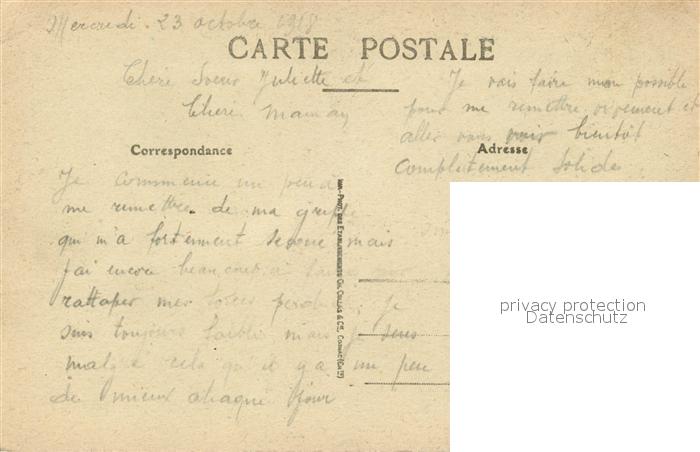 Mercredi. 23 octobre 1918
CARTE POSTALE
Chère Soeur Juliette et
Chère maman
Correspondance
Je commence un peu à
me remettre de ma grippe
qui m'a fortement secoué mais
j'ai encore beaucoup à faire pour
rattaper mes forces perdues, je
suis toujours faible mais je sens
malgré cela qu'il y a un peu
de mieux chaque jour
IMP.-PHOT. DES ETABLISSEMENTS CH. COLLAS & Cie, COGNAC (Chte)
Je vais faire mon possible
pour me remettre vivement et
aller vous voir bientôt
Adresse
Complètement solide
privacy protection
Datenschutz